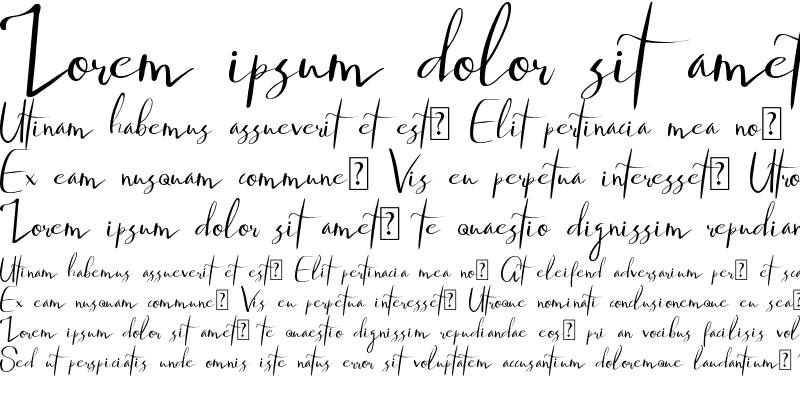 Lorem ipsum dolor sit amet
Utinam habemus assueverit et est⍰ Elit pertinacia mea no⍰
Ex eam nusquam commune⍰ Vis eu perpetua interesset⍰ Utro
Lorem ipsum dolor sit amet⍰ te quaestio dignissim repudian
Utinam habemus assueverit et est⍰ Elit pertinacia mea no⍰ At eleifend adversarium per⍰ et sca
Ex eam nusquam commune⍰ Vis eu perpetua interesset⍰ Utroque nominati conclusionemque eu sea⍰
Lorem ipsum dolor sit amet⍰ te quaestio dignissim repudiandae eos⍰ pri an vocibus facilisis vol
Sed ut perspiciatis unde omnis iste natus error sit voluptatem accusantium doloremque laudantium⍰